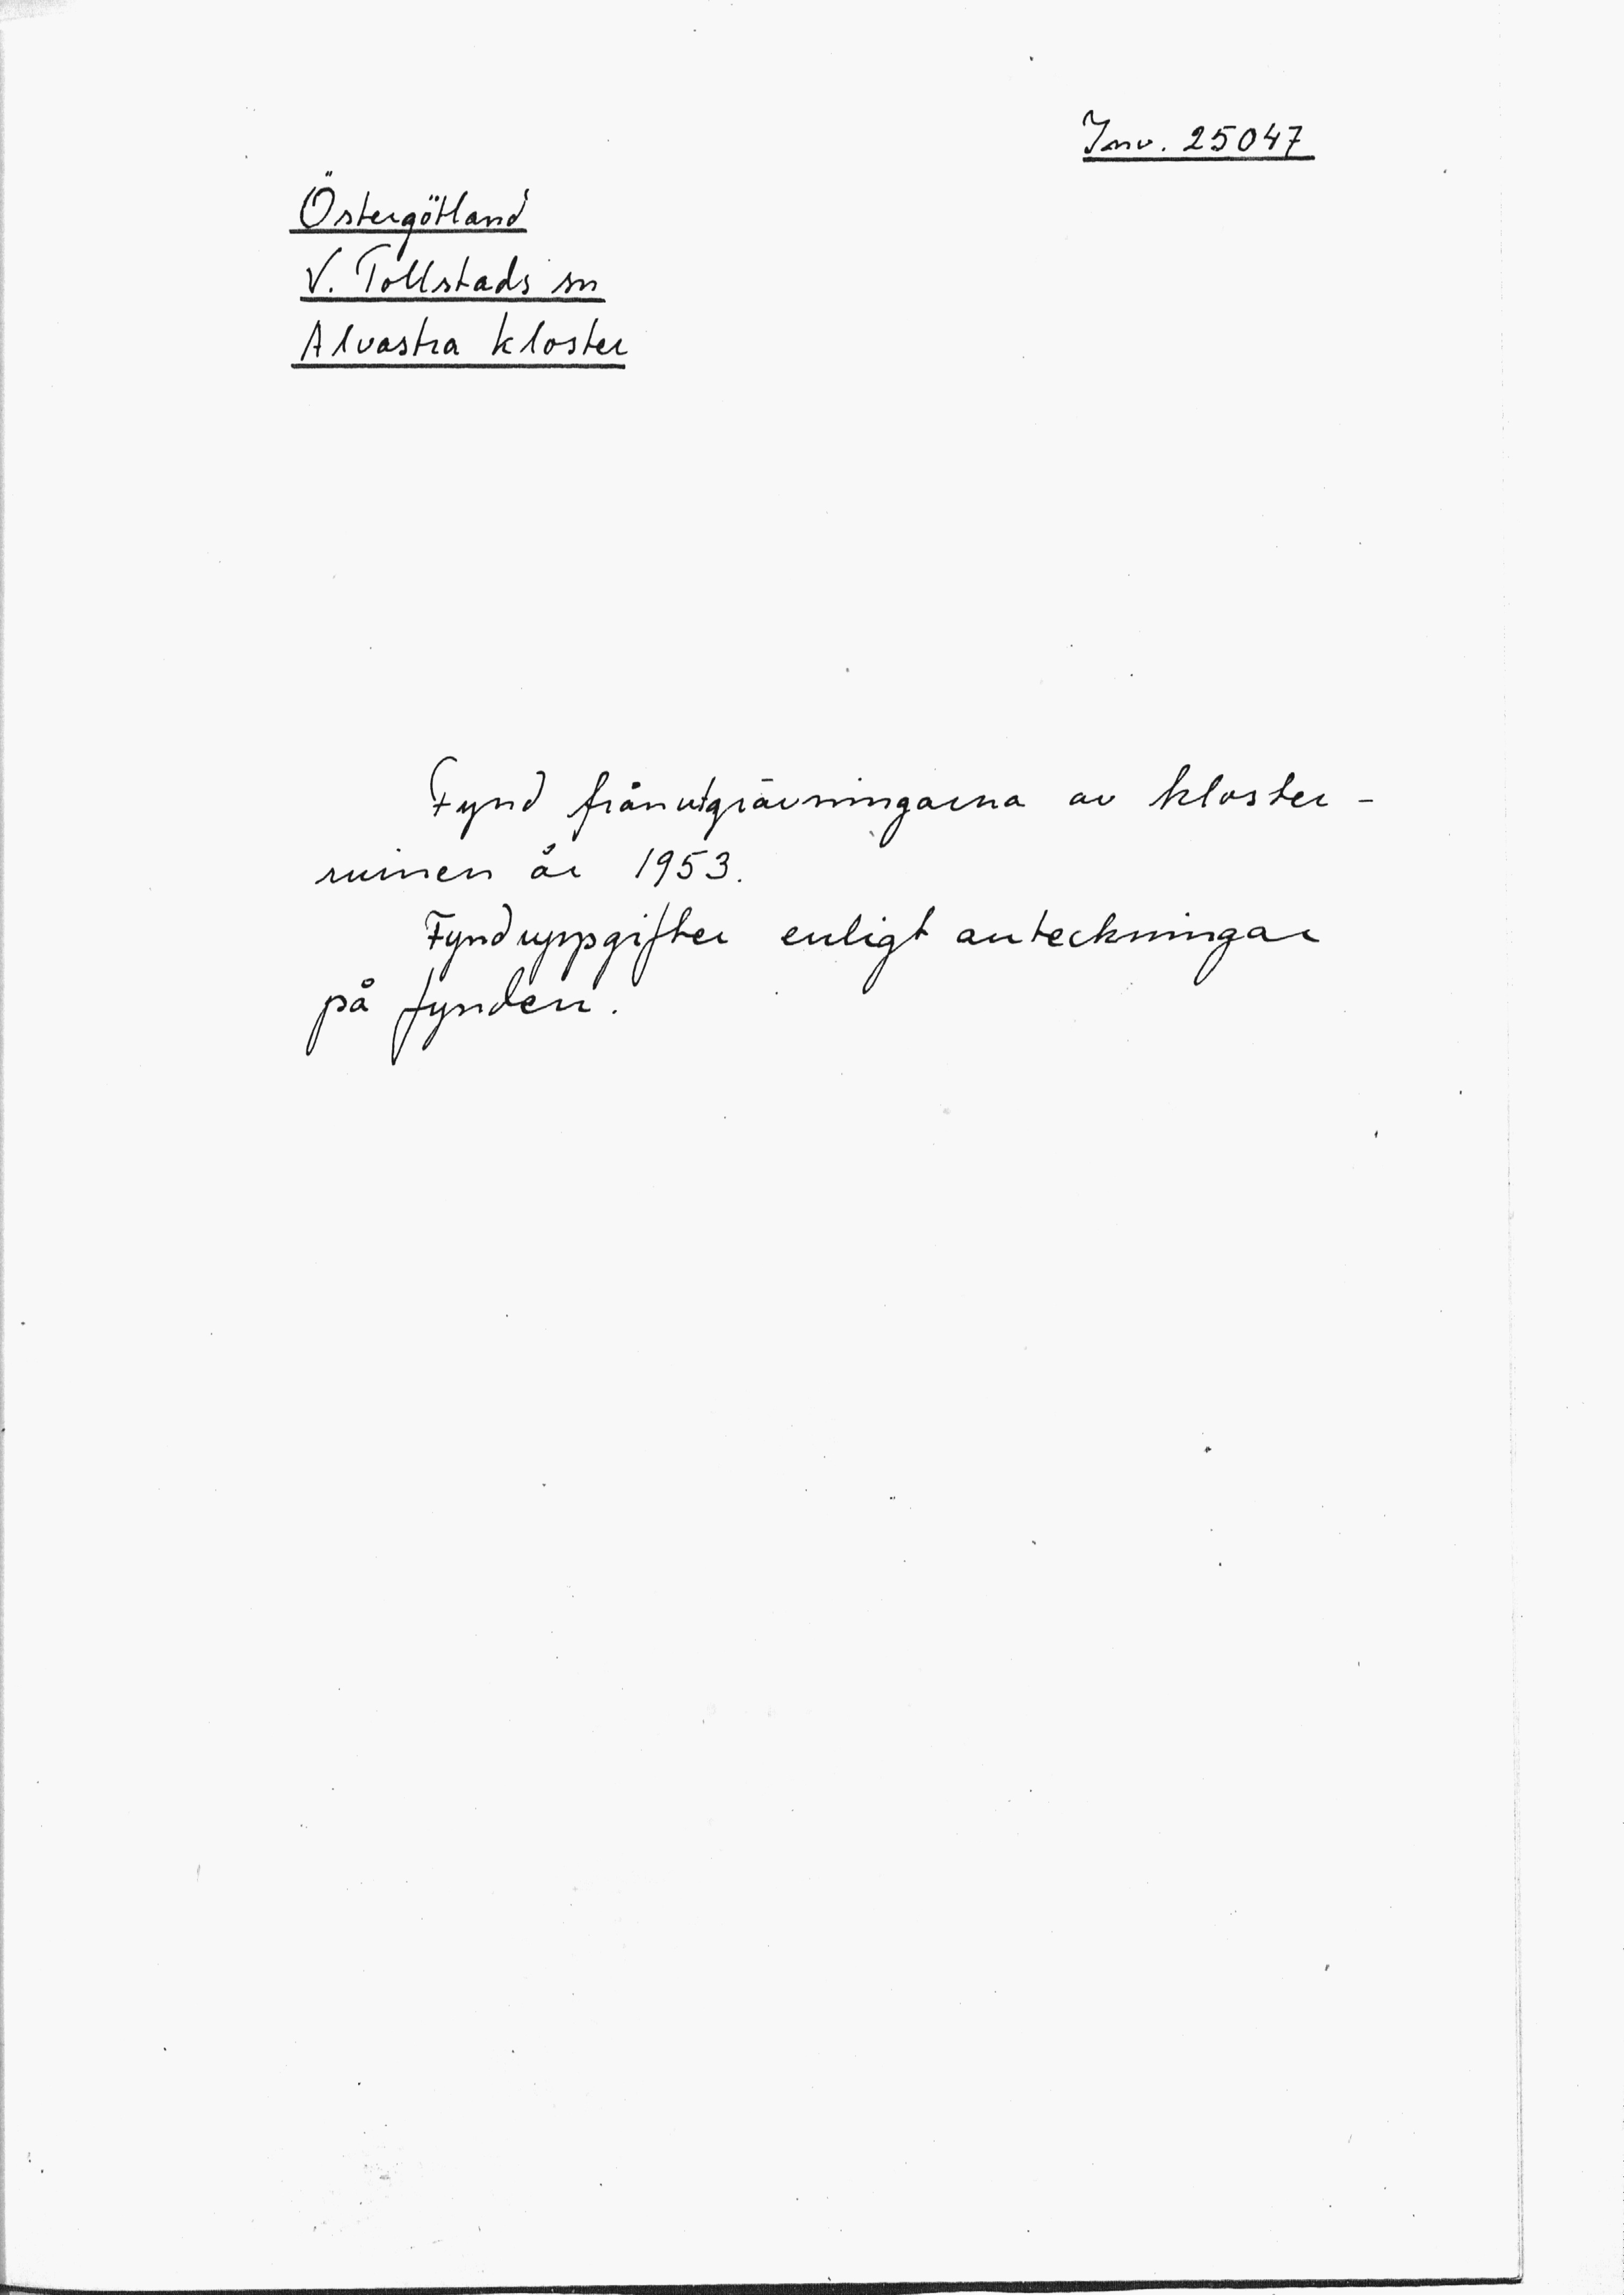 Inv. 25047
Östergötland
V. Tollstads sn
Alvastra kloster
Fynd från utgrävningarna av kloster-
ruinen år 1953.
Fynduppgifter enligt anteckningar
på fynden.